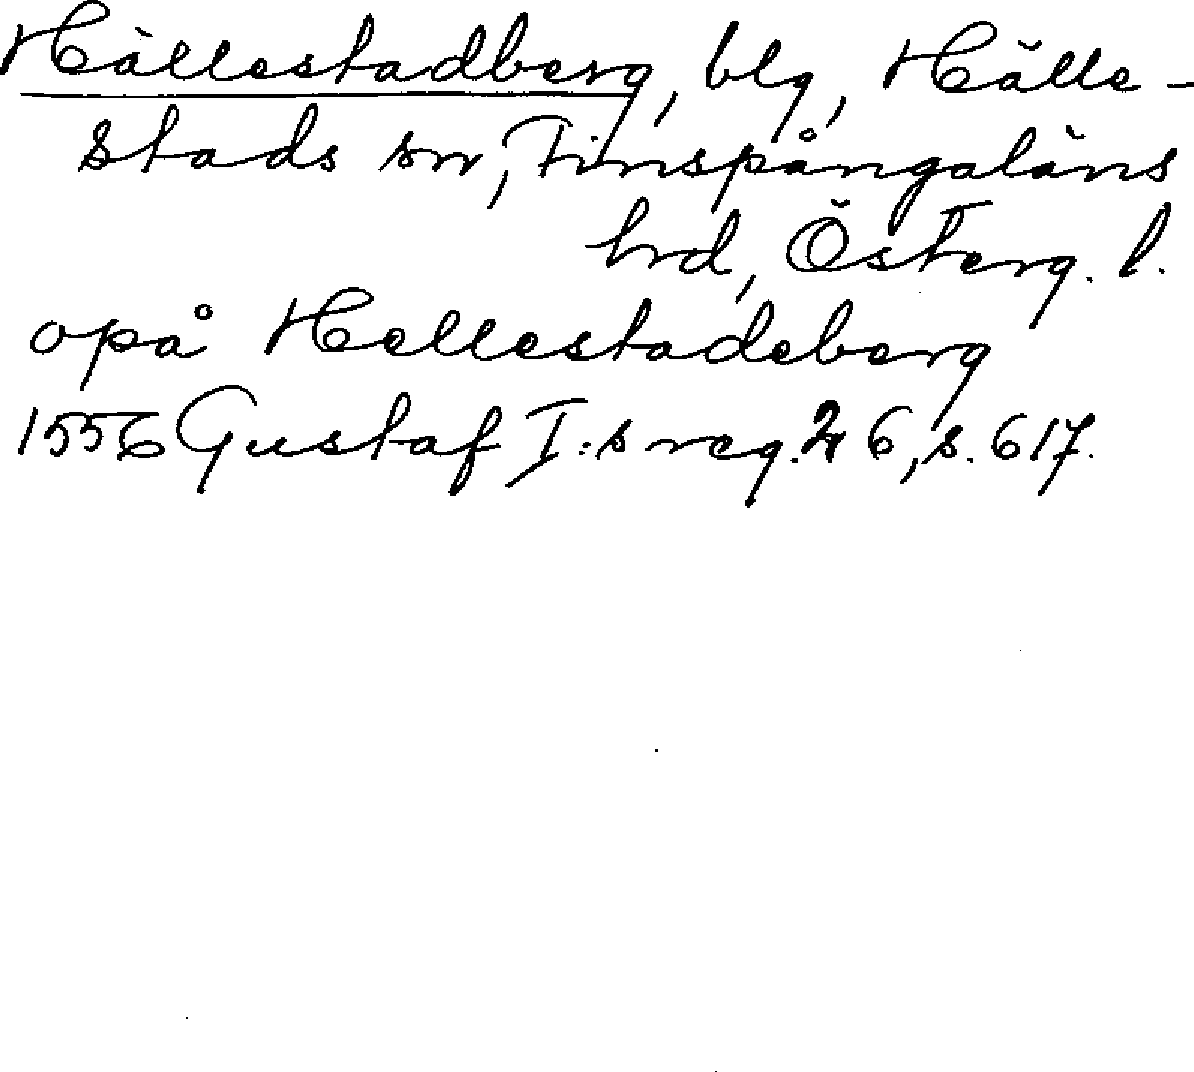 Hällestadberg, blg, Hälle-
stads sn, Finspångaläns
hrd, Österg. l.
opå Hellestadeberg
1556 Gustaf I:s reg. 26, s. 617.